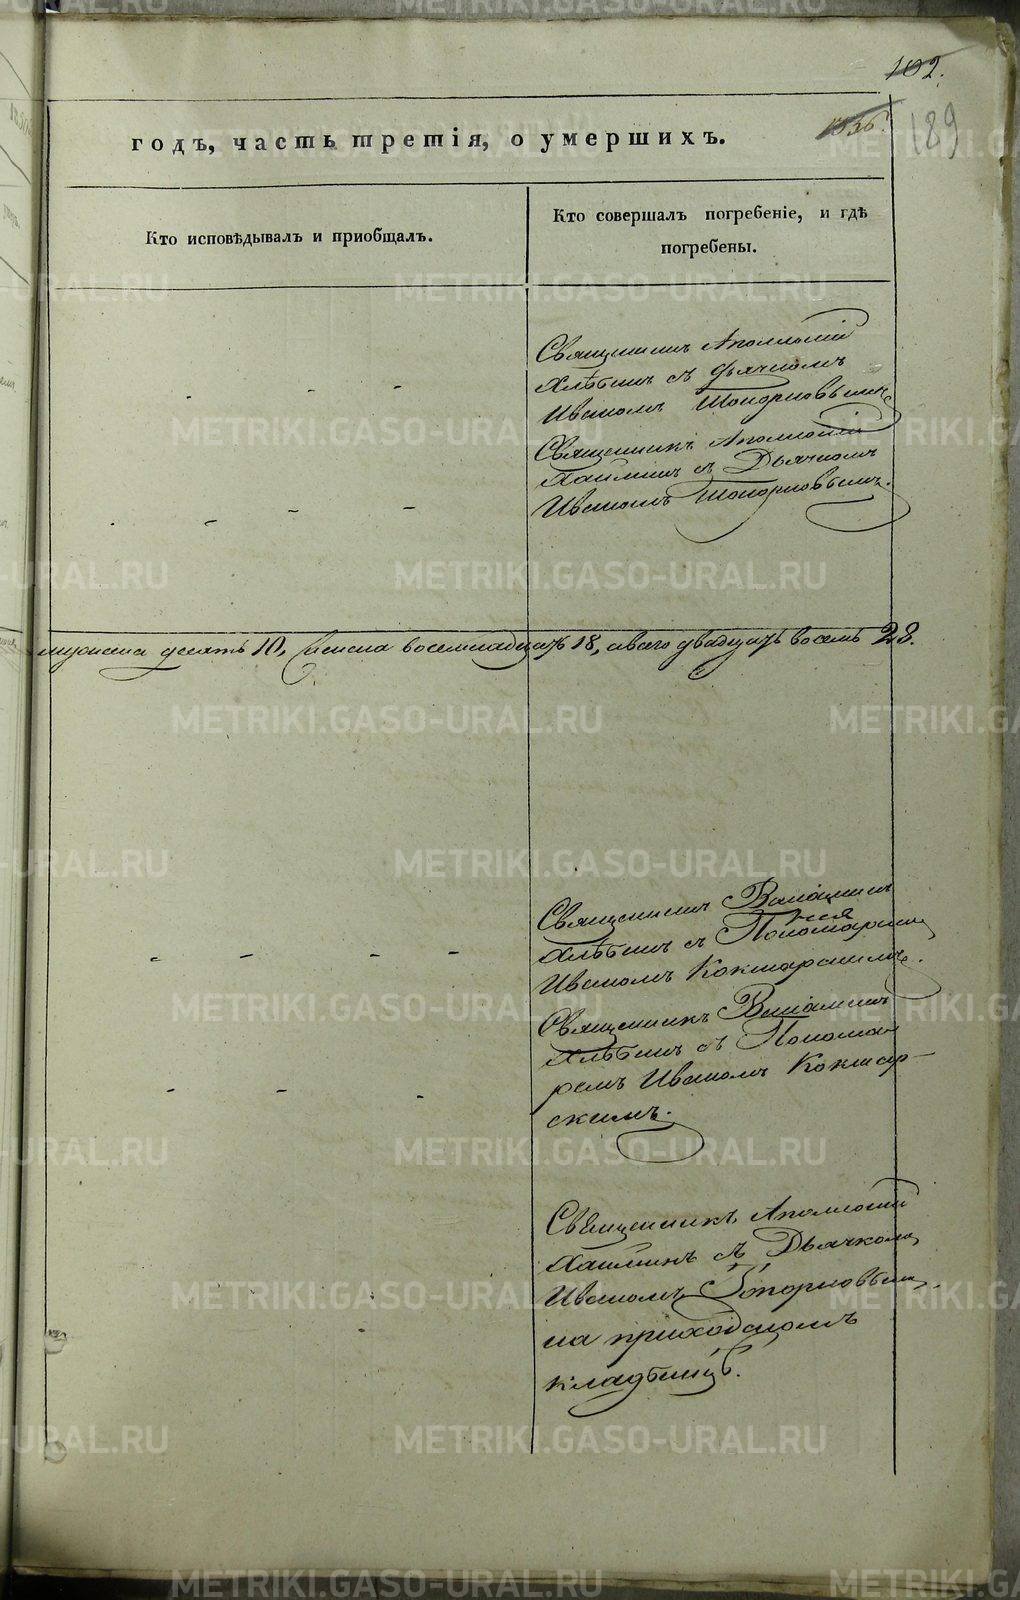 102.
189
годъ, часть третія, о умершихъ.
Кто исповѣдывалъ и приобщалъ.
Кто совершалъ погребеніе, и гдѣ
погребены.
Священникъ Аполлоній
Хлѣбинъ съ дьячкомъ
Иваномъ Топорковымъ
Священникъ Аполлоній
съ Дьячкомъ
Иваномъ Топорковымъ.
десять 10, Женска восемнадцать 18, а всего двадцать восемь 28.
Священникъ
Хлѣбинъ съ Пономаремъ
Иваномъ Кокшарскимъ.
Священникъ
Хлѣбинъ съ Понома-
ремъ Иваномъ Кокшар-
скимъ.
Священникъ Аполлоній
съ Дьячкомъ
Иваномъ Топорковымъ
на приходскомъ
кладбищѣ.
METRIKI.GASO-URAL.RU